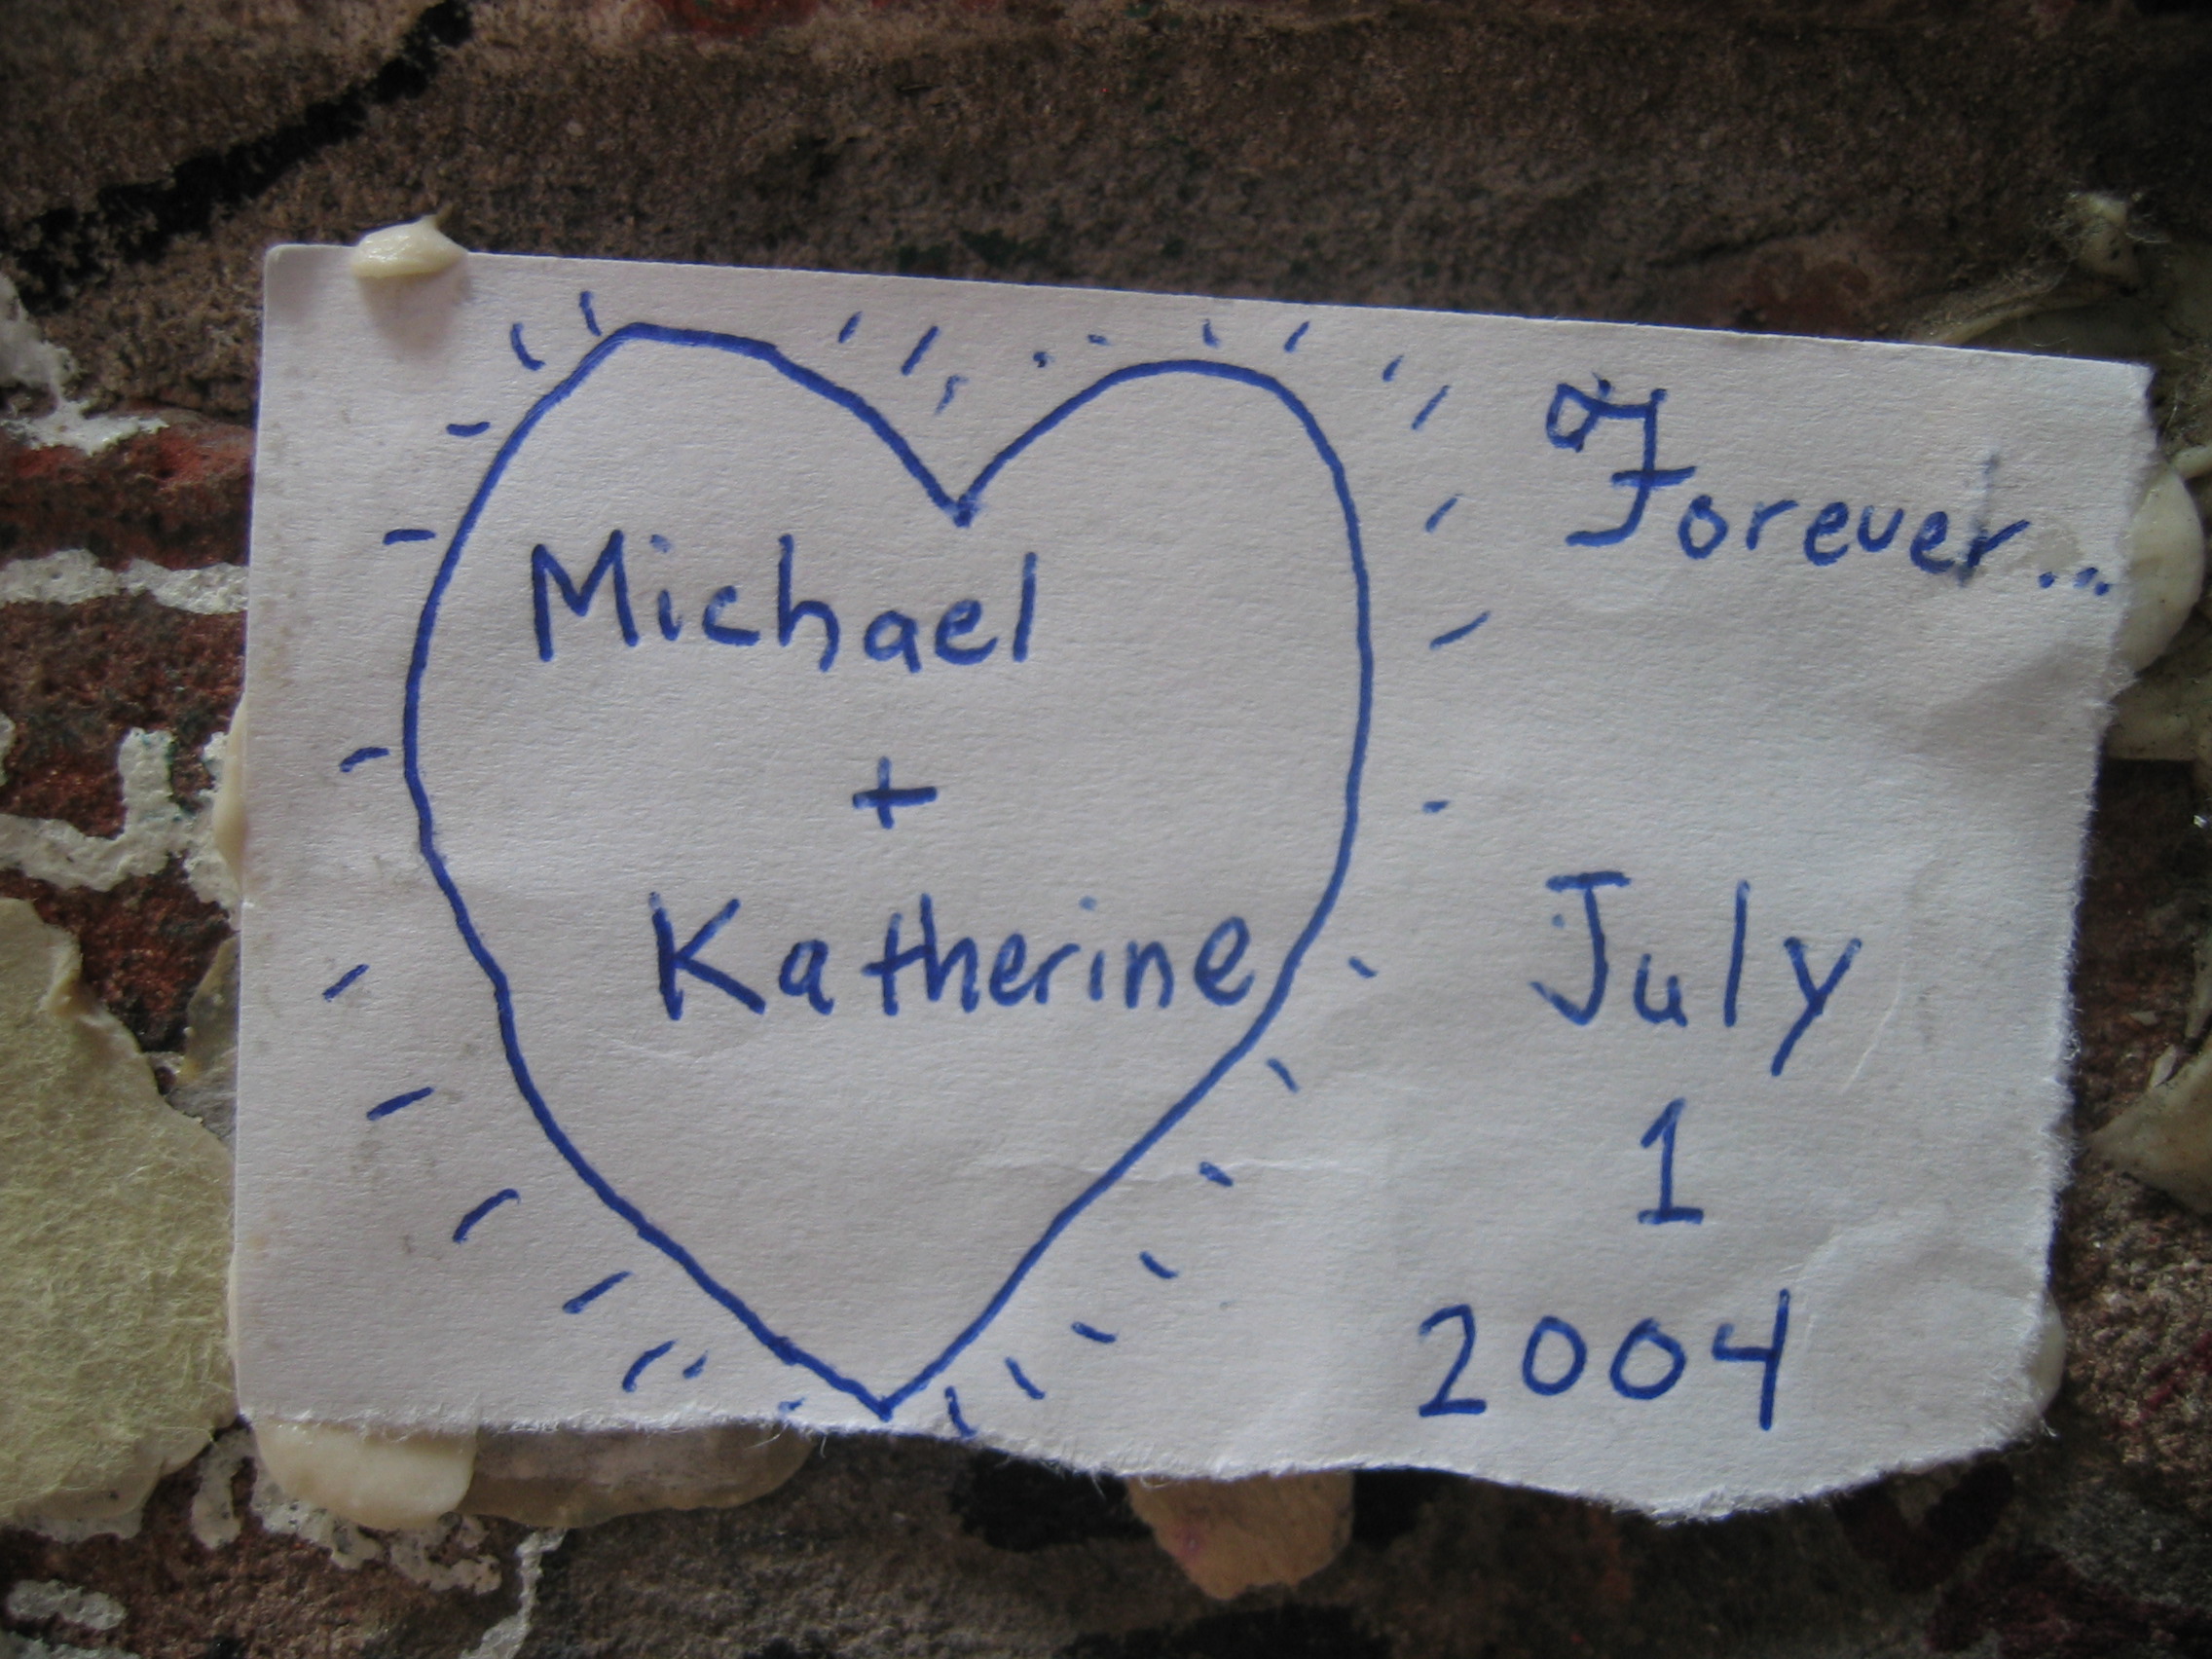 Michael
+
Katherine
Forever...
July
1
2004